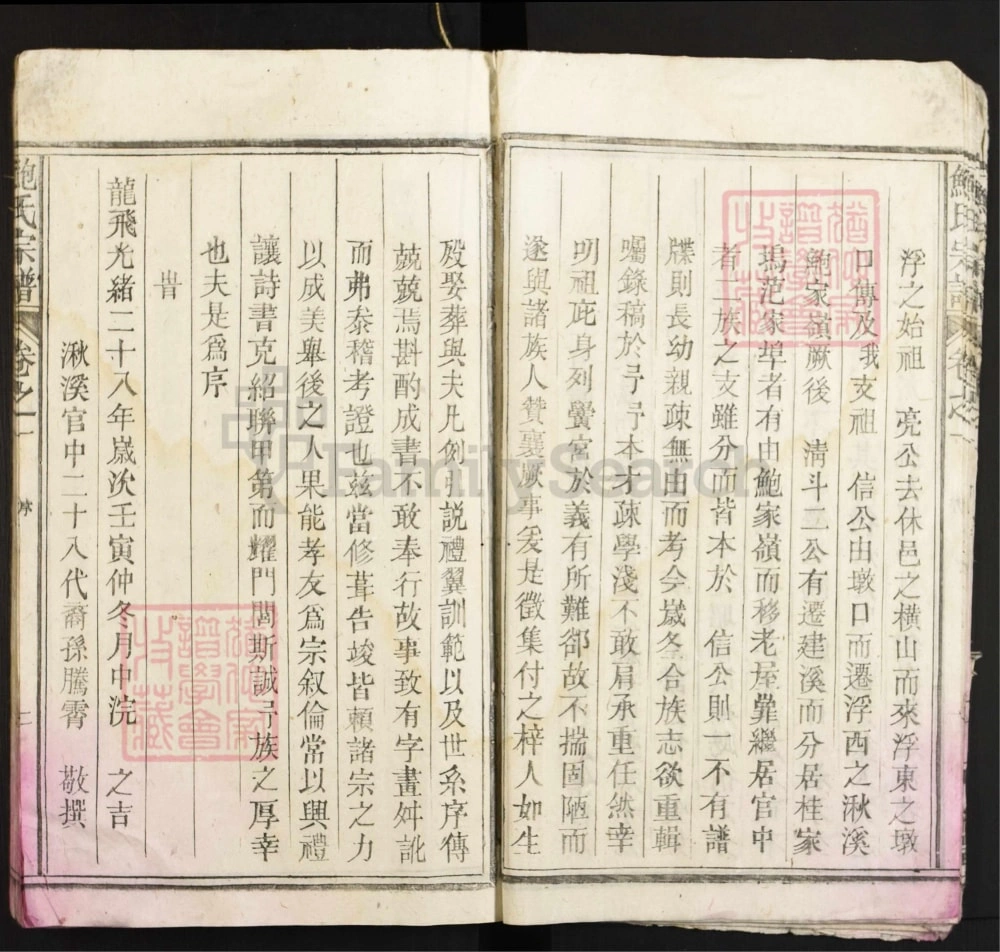 鮑氏宗譜 卷之一
浮之始祖 亮公去休邑之橫山而來浮東之墩
口傳及我支祖 信公由墩口而遷浮西之湫溪
鮑家嶺厥後 清斗二公有遷建溪而分居桂家
塢范家埠者有由鮑家嶺而移老屋犘繼居官中
者二族之支雖分而皆本於 信公則一不有譜
牒則長幼親疎無由而考今嵗冬合族志欲重輯
囑錄稿於予予本才疎學淺不敢肩承重任然幸
明祖庇身列黌宮於義有所難卻故不揣固陋而
遂與諸族人贊襄厥事爰是徵集付之梓人如生
殁娶葬與夫凡例引説禮翼訓範以及世系序傳
兢兢焉斟酌成書不敢奉行故事致有字畫舛訛
而弗叅稽考證也兹當修葺告竣皆賴諸宗之力
以成美舉後之人果能孝友爲宗叙倫常以興禮
讓詩書克紹聯甲第而耀門閭斯誠予族之厚幸
也夫是爲序
旹
龍飛光緒二十八年嵗次壬寅仲冬月中浣 之吉
湫溪官中二十八代裔孫騰霄 敬撰
鮑氏宗譜 卷之一 序 二
FamilySearch